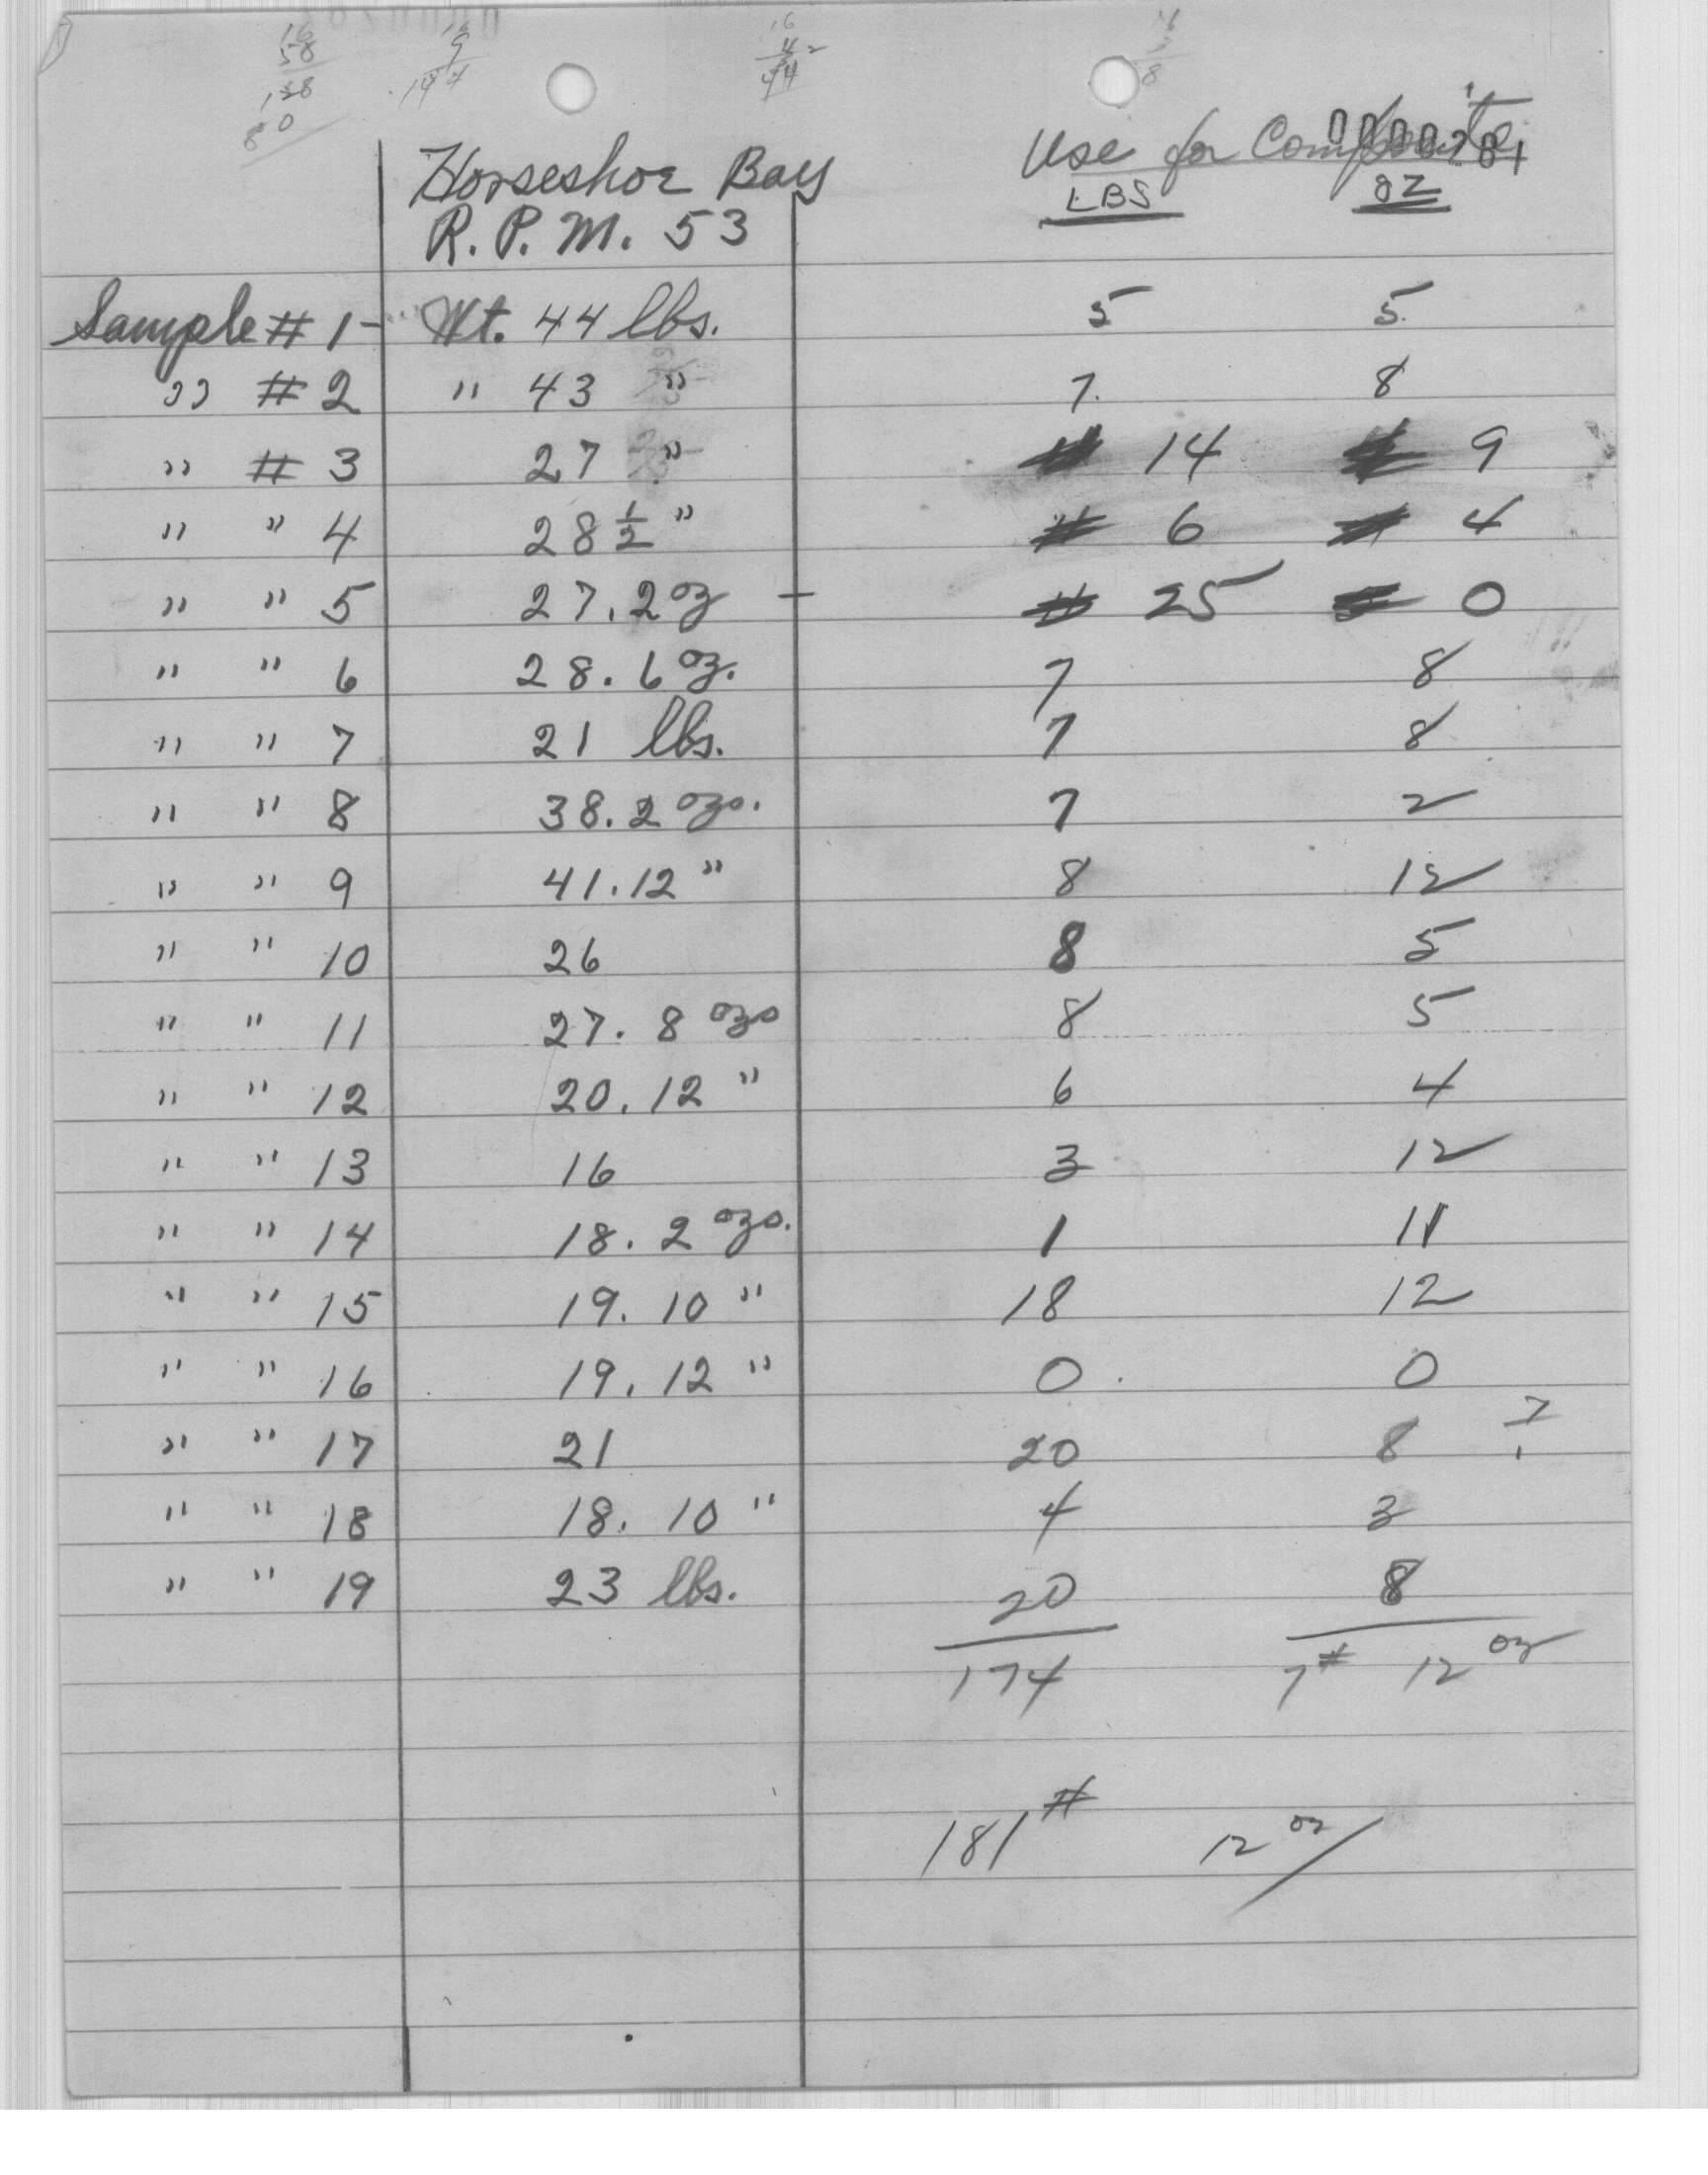 16 16 16 16
58 9 4 2
128 144 44 8
80
Horseshoe Bay Use for Composite
R. P. M. 53 LBS OZ
0000281
Sample # 1- Wt. 44 lbs. 5 5
" # 2 " 43 " 7. 8
" # 3 27 " 14 9
" " 4 28 1/2 " 6 4
" " 5 27.2 oz - 25 0
" " 6 28.6 oz. 7 8
" " 7 21 lbs. 7 8
" " 8 38.2 ozs. 7 2
" " 9 41.12 " 8 12
" " 10 26 8 5
" " 11 27. 8 ozs 8 5
" " 12 20.12 " 6 4
" " 13 16 3 12
" " 14 18. 2 ozs. 1 11
" " 15 19. 10 " 18 12
" " 16 19. 12 " 0 0
" " 17 21 20 8 ?
" " 18 18. 10 " 4 3
" " 19 23 lbs. 20 8
174 7# 12 oz
181# 12 oz/